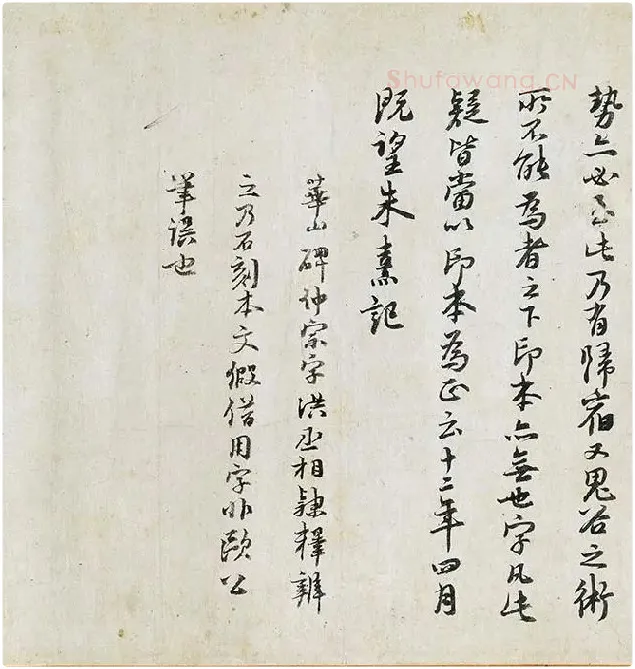 Shufawang.CN
勢亦必至此乃有歸宿又鬼谷之術
所不能為者之下印本亦無也字凡此
疑皆當以印本為正云十二年四月
既望朱熹記
華山碑仲宗字洪丞相隸釋辨
之乃石刻本文假借用字非歐公
筆誤也